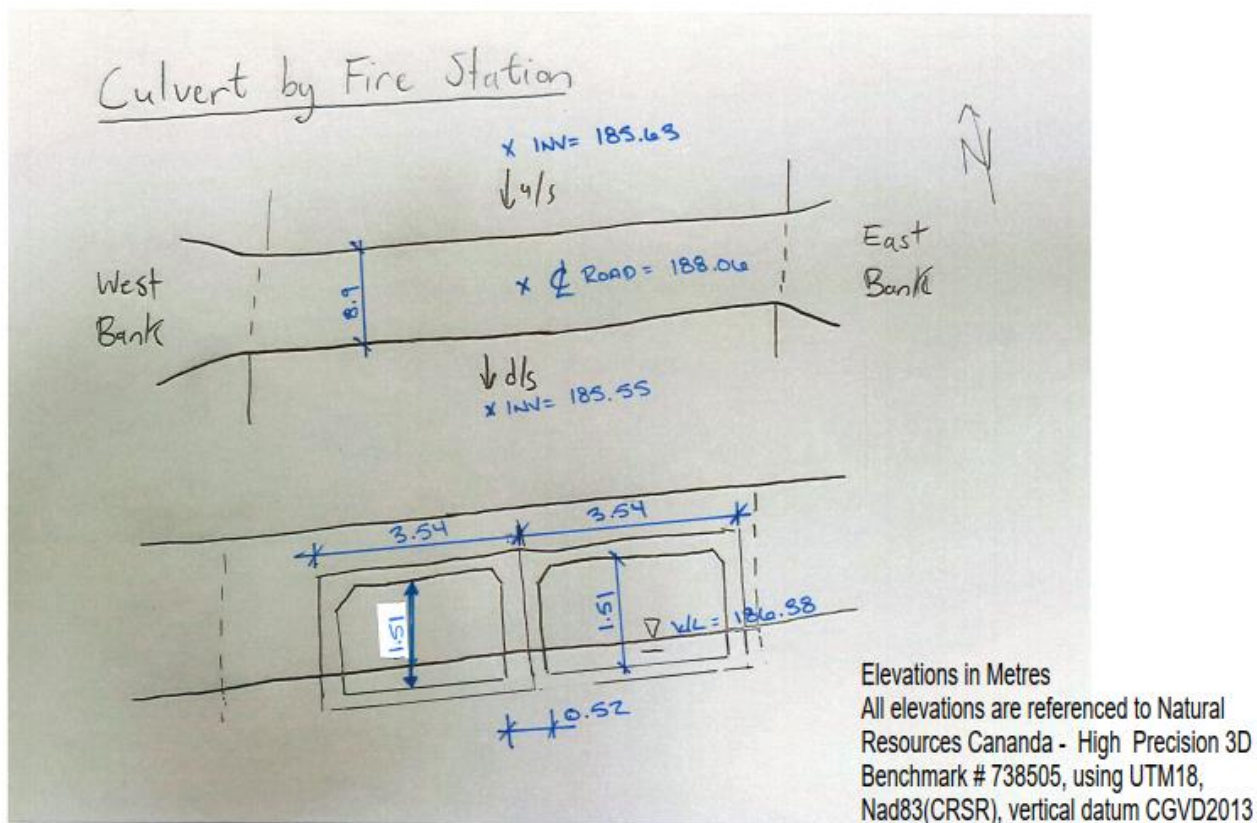 Culvert by Fire Station
x INV= 185.63
N
u/s
East
Bank
West
Bank
8.9
x ℄ ROAD = 188.06
d/s
x INV= 185.55
3.54
3.54
1.51
1.51
W/L = 186.38
0.52
Elevations in Metres
All elevations are referenced to Natural
Resources Cananda - High Precision 3D
Benchmark # 738505, using UTM18,
Nad83(CRSR), vertical datum CGVD2013